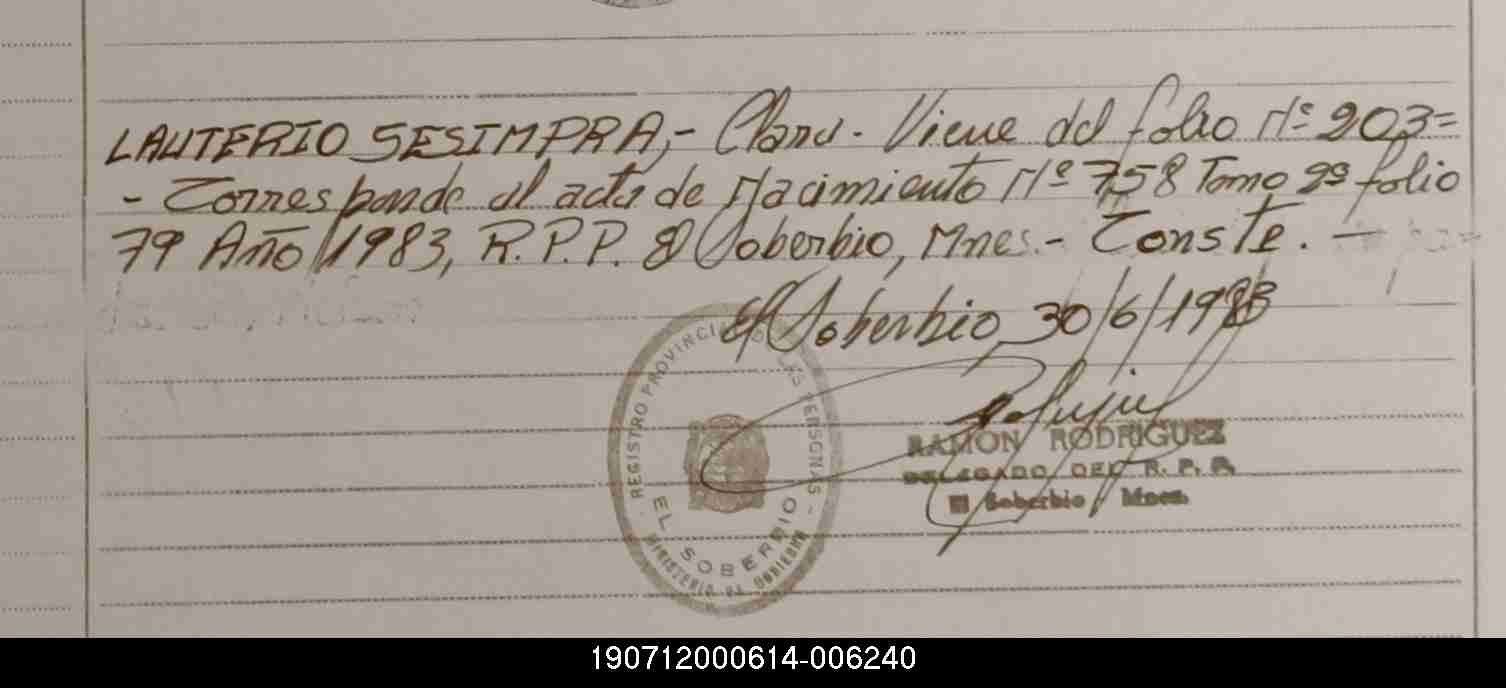 LAUTERIO SESIMPRA,- Clara - Viene del folio Nº 203=
- Corresponde al acta de Nacimiento Nº 758 Tomo 2º folio
79 Año 1983, R.P.P. El Soberbio, Mnes.- Conste. -
El Soberbio, 30/6/1983
REGISTRO PROVINCIAL DE LAS PERSONAS
EL SOBERBIO
MINISTERIO DE GOBIERNO
RAMON RODRIGUEZ
DELEGADO DEL R. P. P.
El Soberbio, Mnes.
190712000614-006240